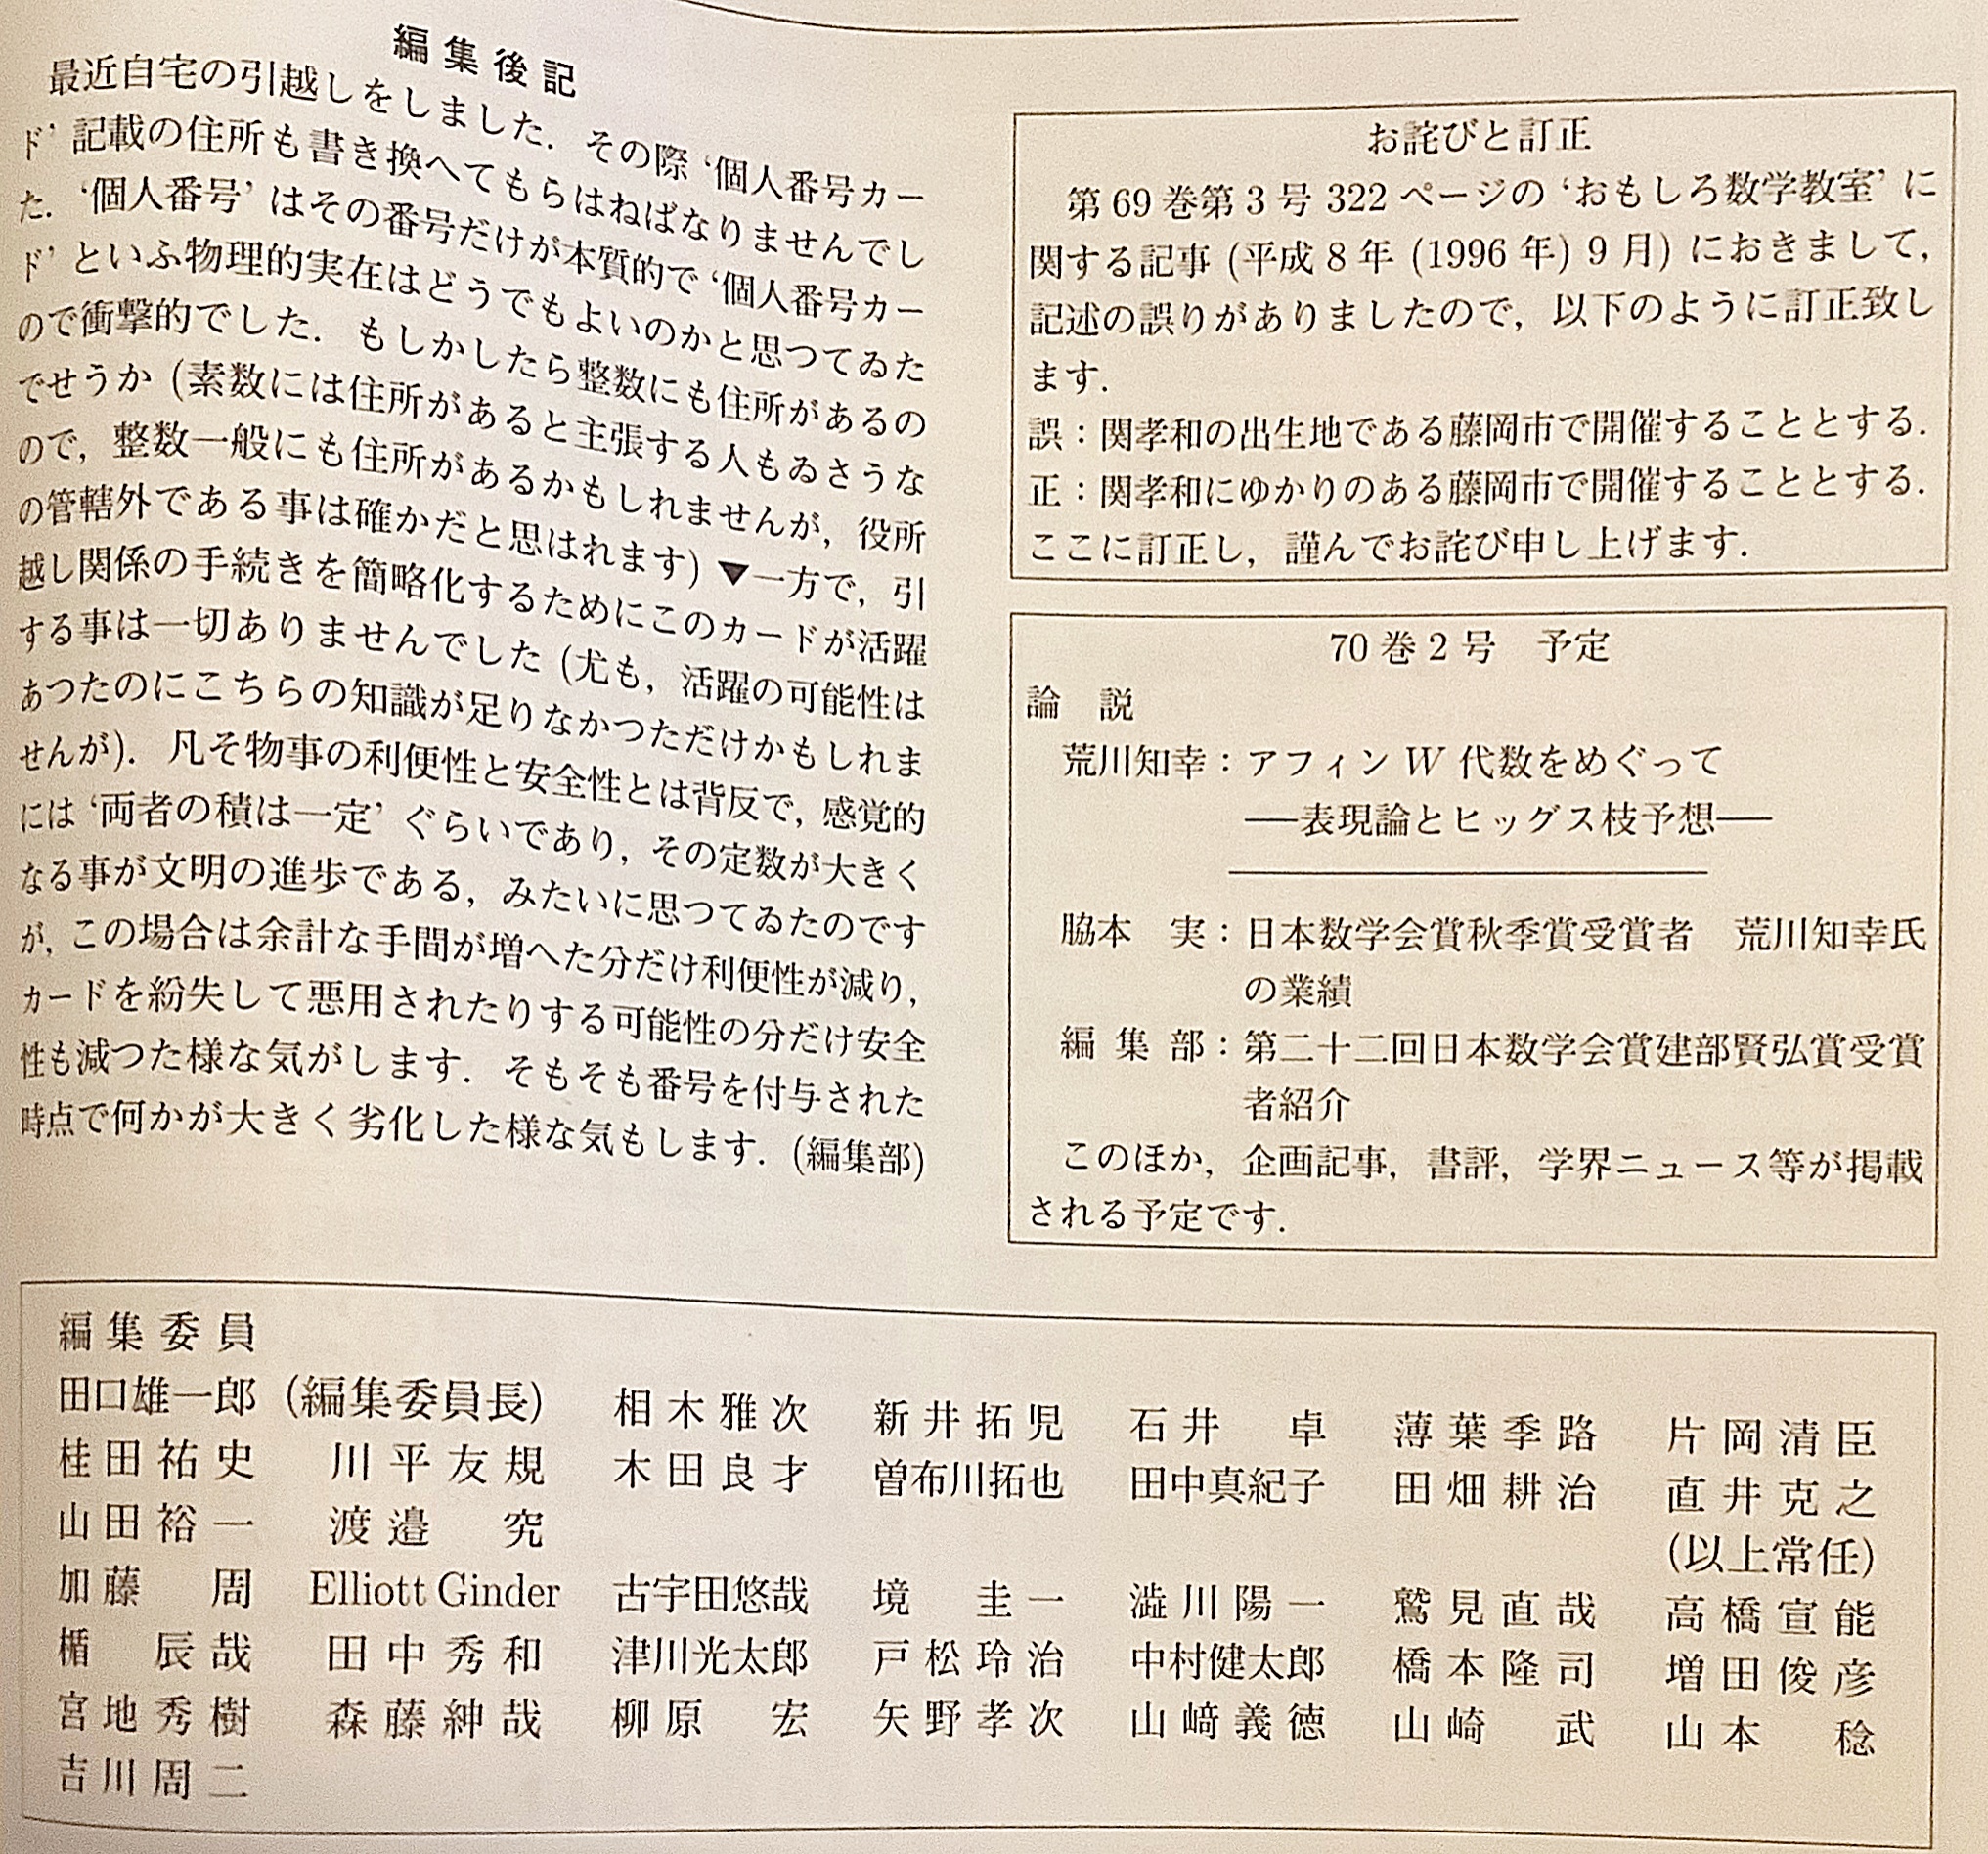 編集後記
最近自宅の引越しをしました．その際 ‘個人番号カー
ド’ 記載の住所も書き換へてもらはねばなりませんでし
た．‘個人番号’ はその番号だけが本質的で ‘個人番号カー
ド’ といふ物理的実在はどうでもよいのかと思つてゐた
ので衝撃的でした．もしかしたら整数にも住所があるの
でせうか (素数には住所があると主張する人もゐさうな
ので，整数一般にも住所があるかもしれませんが，役所
の管轄外である事は確かだと思はれます) ▼一方で，引
越し関係の手続きを簡略化するためにこのカードが活躍
する事は一切ありませんでした (尤も，活躍の可能性は
あつたのにこちらの知識が足りなかつただけかもしれま
せんが)．凡そ物事の利便性と安全性とは背反で，感覚的
には ‘両者の積は一定’ ぐらいであり，その定数が大きく
なる事が文明の進歩である，みたいに思つてゐたのです
が，この場合は余計な手間が増へた分だけ利便性が減り，
カードを紛失して悪用されたりする可能性の分だけ安全
性も減つた様な気がします．そもそも番号を付与された
時点で何かが大きく劣化した様な気もします．(編集部)
お詫びと訂正
第 69 巻第 3 号 322 ページの ‘おもしろ数学教室’ に
関する記事 (平成 8 年 (1996 年) 9 月) におきまして，
記述の誤りがありましたので，以下のように訂正致し
ます．
誤：関孝和の出生地である藤岡市で開催することとする．
正：関孝和にゆかりのある藤岡市で開催することとする．
ここに訂正し，謹んでお詫び申し上げます．
70 巻 2 号　予定
論　説
荒川知幸：アフィン W 代数をめぐって
──表現論とヒッグス枝予想──
脇本　実：日本数学会賞秋季賞受賞者　荒川知幸氏
の業績
編 集 部：第二十二回日本数学会賞建部賢弘賞受賞
者紹介
このほか，企画記事，書評，学界ニュース等が掲載
される予定です．
編集委員
田口雄一郎 (編集委員長)　相木雅次　新井拓児　石井　卓　薄葉季路　片岡清臣
桂田祐史　川平友規　木田良才　曽布川拓也　田中真紀子　田畑耕治　直井克之
山田裕一　渡邉　究　(以上常任)
加藤　周　Elliott Ginder　古宇田悠哉　境　圭一　澁川陽一　鷲見直哉　高橋宣能
楯　辰哉　田中秀和　津川光太郎　戸松玲治　中村健太郎　橋本隆司　増田俊彦
宮地秀樹　森藤紳哉　柳原　宏　矢野孝次　山﨑義徳　山崎　武　山本　稔
吉川周二